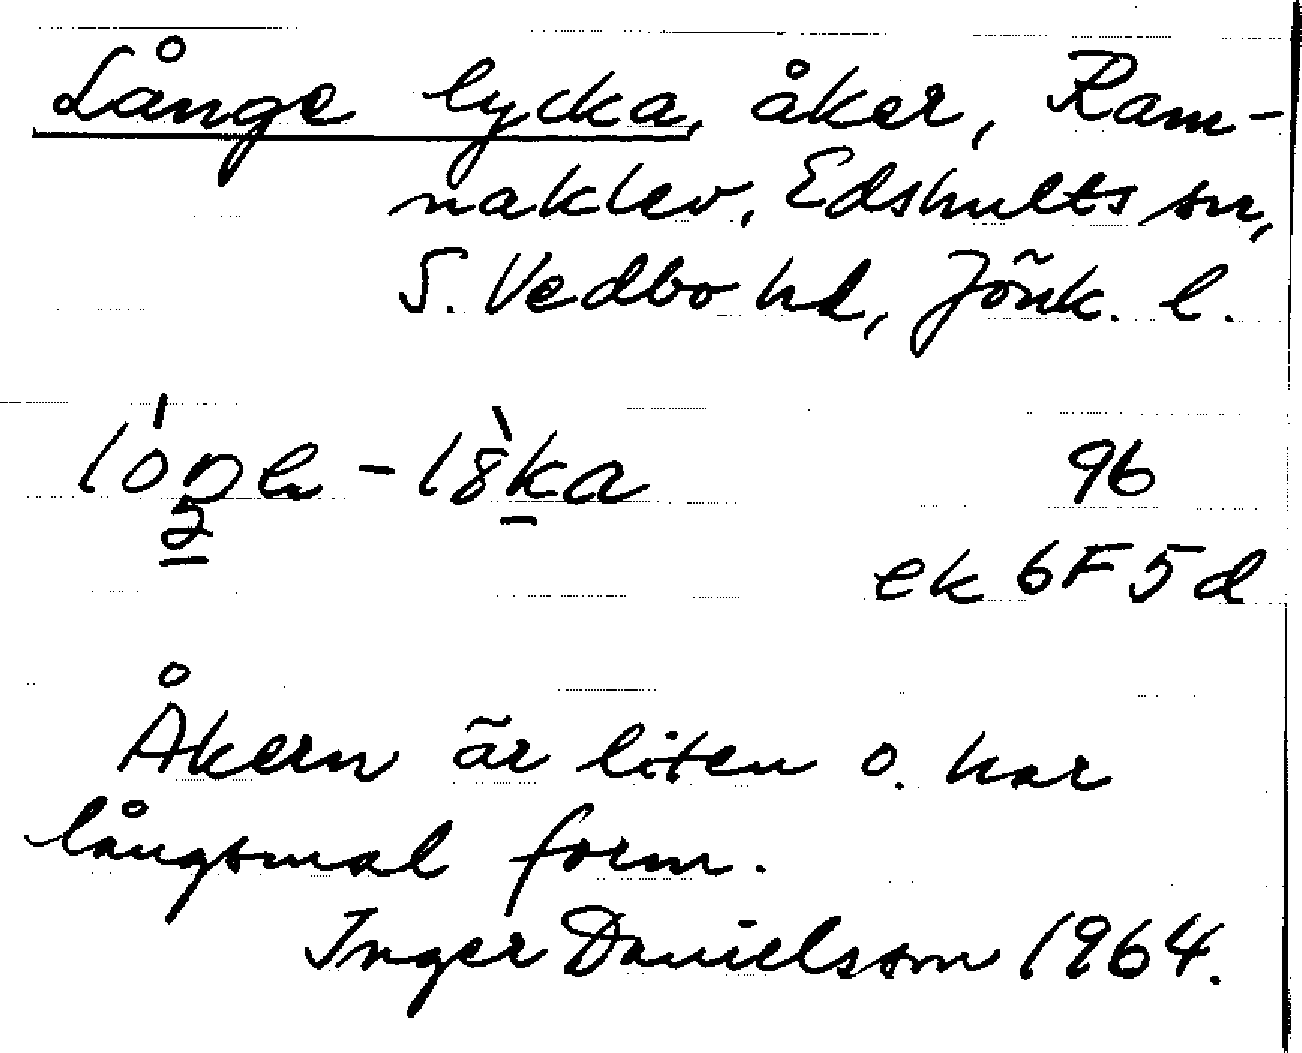 Långe lycka, åker, Ram-
naklev, Edshults sn,
S. Vedbo hd, Jönk. l.
96
ek 6F5d
Åkern är liten o. har
långsmal form.
Inger Danielsson 1964.